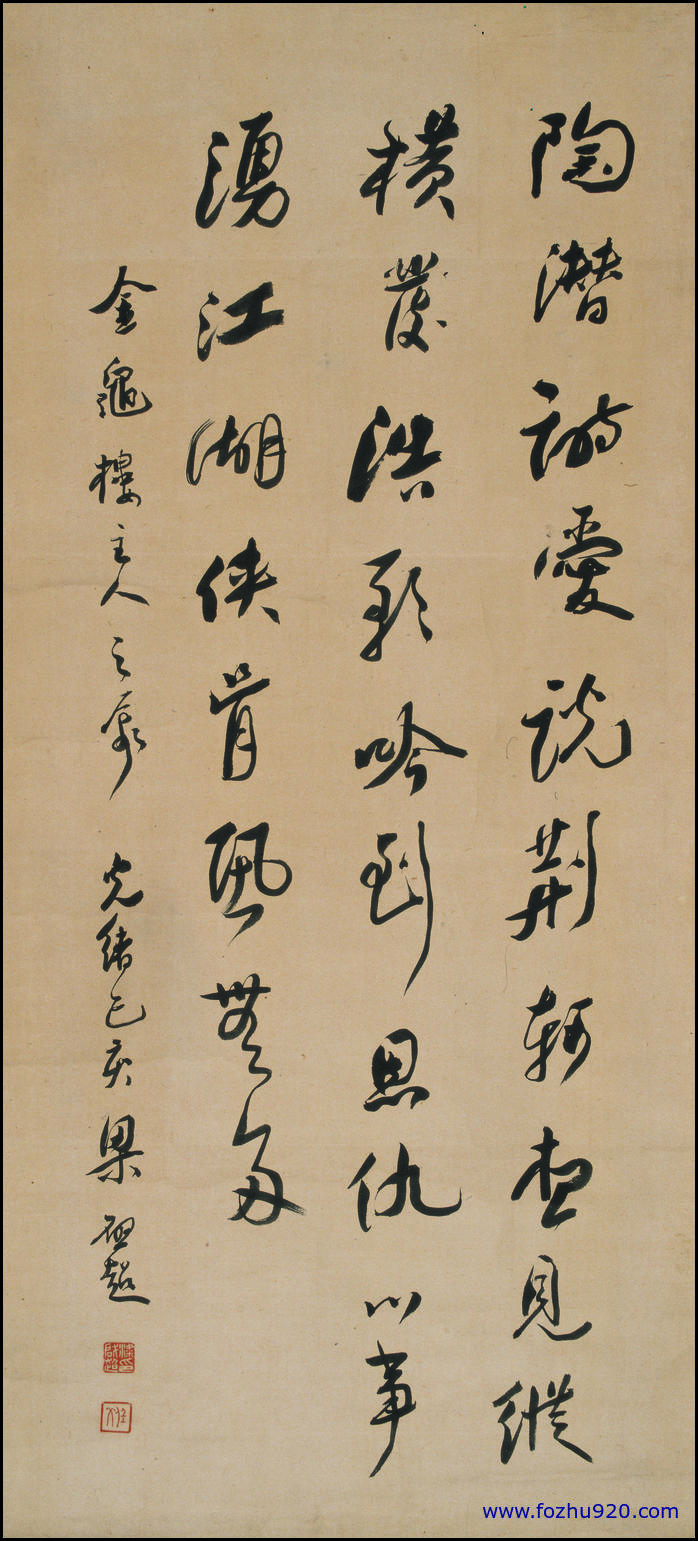 陶潛詩愛說荊軻想見縱
橫發浩歌吟到恩仇心事
湧江湖俠骨風無多
金龜樓主人之 光緒己亥梁啟超
www.fozhu920.com